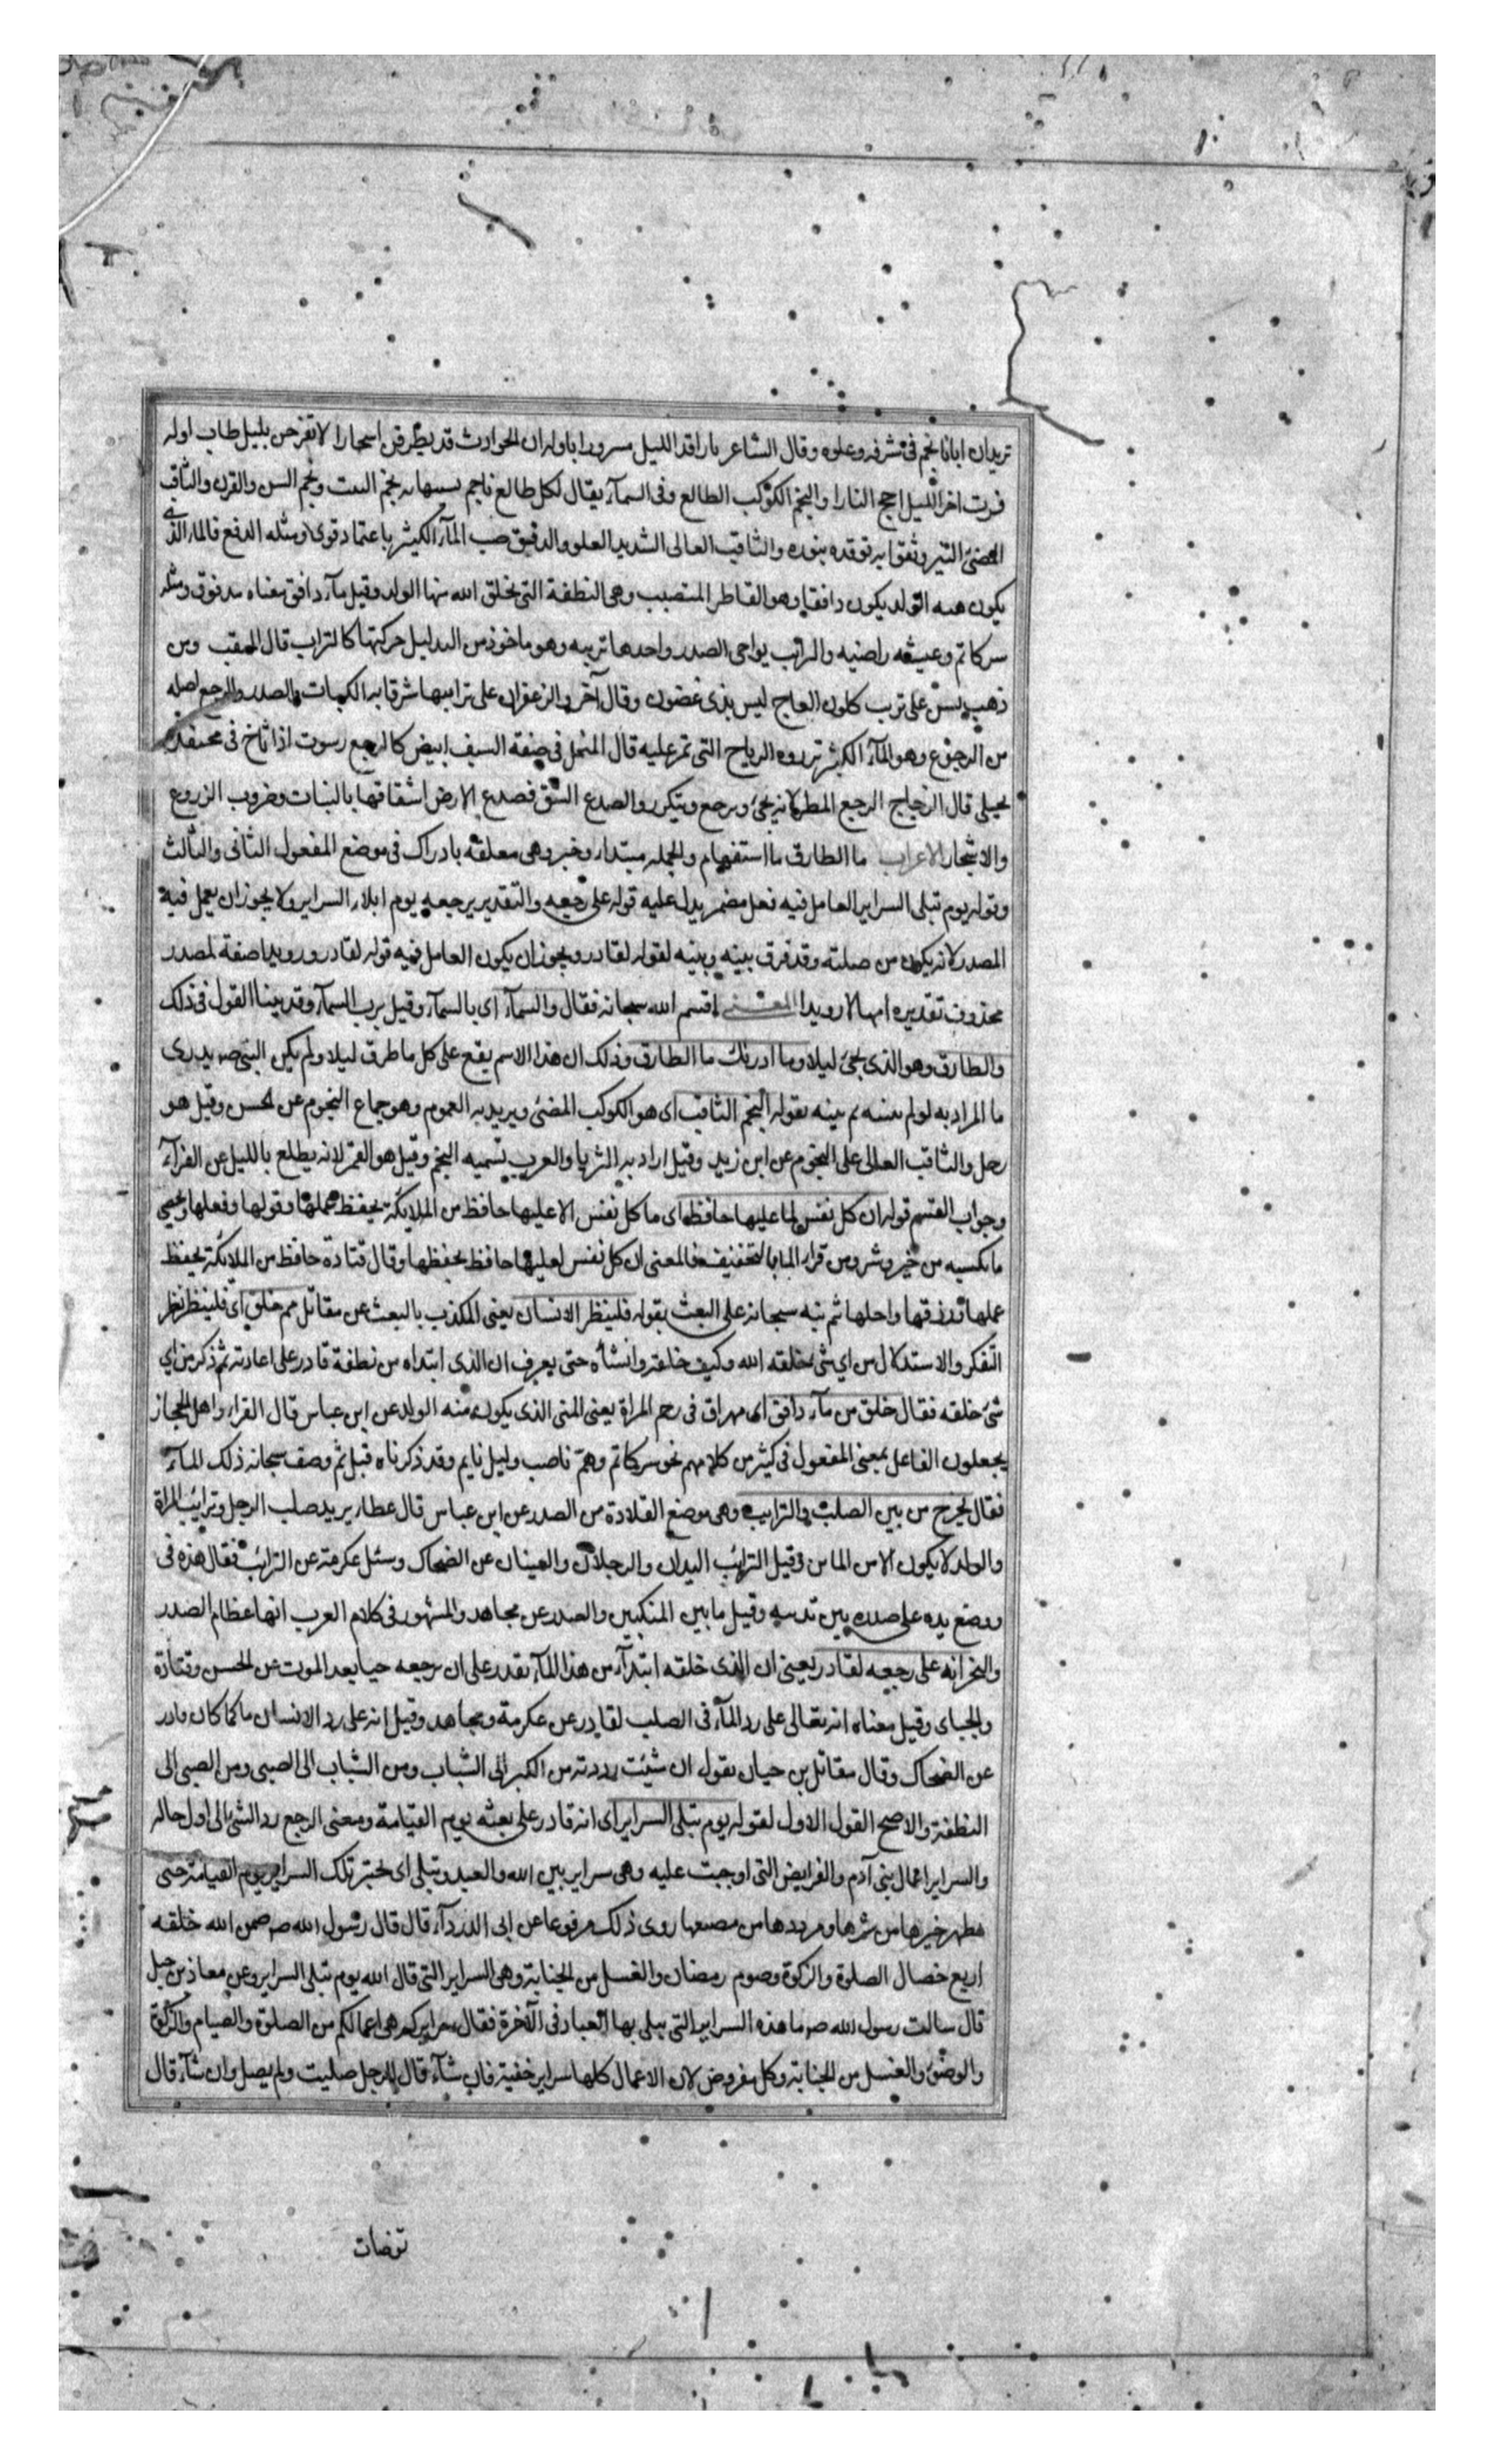 تريدان ابانا نجم فى شرفه وعلوه وقال الشاعر يا راقد الليل مسرورا باوله ان الحوادث قد يطرقن اسحارا لا تفرحن بليل طاب اوله
فرب اخر الليل اجج النارا والنجم الكوكب الطالع وفى السمآء يقال لكل طالع ناجم تشبيها به نجم النبت ونجم السن والقرن والثاقب
المضئ النير وثقوبه توقده بنوره والثاقب العالى الشديد العلو والدفق صب المآء الكثير باعتماد قوى ومثله الدفع فالماء الذى
يكون منه الولد يكون دافقا وهو القاطر المنصبب وهى النطفة التى يخلق الله منها الولد وقيل مآء دافق معناه مدفوق ومثله
سر كاتم وعيشه راضيه والترائب نواحى الصدر واحدها تريبه وهو ماخوذ من التذليل حركتها كالتراب قال المثقب ومن
ذهب يسن على تريب كلون العاج ليس بذى غضون وقال آخر والزعفران على ترايبها شرقا به اللبات والصدر والرجع اصله
من الرجوع وهو المآء الكثير تردده الرياح التى تمر عليه قال المنخل فى صفة السيف ابيض كالرجع رسوب اذا ثاخ فى محتفل
يختلى قال الزجاج الرجع المطر لانه يجئ ويرجع ويتكرر والصدع الشق فصدع الارض انشقاقها بالنبات وضروب الزروع
والاشجار الاعراب ما الطارق ما استفهام والجمله مبتداء وخبر وهى معلقه بادراك فى موضع المفعول الثانى والثالث
وقوله يوم تبلى السراير العامل فيه فعل مضمر يدل عليه قوله على رجعه والتقدير يرجعه يوم ابلاء السراير ولا يجوز ان يعمل فيه
المصدر لانه يكون من صلته وقد فرق بينه وبينه لقوله لقادر ويجوز ان يكون العامل فيه قوله لقادر ورويدا صفة لمصدر
محذوف تقديره امهالا رويدا المعنى اقسم الله سبحانه فقال والسمآء اى بالسمآء وقيل برب السمآء وقد بينا القول فى ذلك
والطارق وهو الذى يجئ ليلا وما ادريك ما الطارق وذلك ان هذا الاسم يقع على كل ما طرق ليلا ولم يكن النبى صه يدرى
ما المراد به لو لم يبينه ثم بينه بقوله النجم الثاقب اى هو الكوكب المضئ ويريد به العموم وهو جماع النجوم عن الحسن وقيل هو
زحل والثاقب العالى على النجوم عن ابن زيد وقيل اراد به الثريا والعرب تسميه النجم وقيل هو القمر لانه يطلع بالليل عن الفرآء
وجواب القسم قوله ان كل نفس لما عليها حافظ اى ما كل نفس الا عليها حافظ من الملائكة يحفظ عملها وقولها وفعلها ويحصى
ما تكسبه من خير وشر ومن قراء لما بالتخفيف فالمعنى ان كل نفس لعليها حافظ يحفظها وقال قتادة حافظ من الملائكة يحفظ
عملها ورزقها واجلها ثم نبه سبحانه على البعث بقوله فلينظر الانسان يعنى المكذب بالبعث عن مقاتل مم خلق اى فلينظر نظر
التفكر والاستدلال من اي شئ خلقه الله وكيف خلقه وانشاه حتى يعرف ان الذى ابتداه من نطفة قادر على اعادته ثم ذكر من اي
شئ خلقه فقال خلق من مآء دافق اى مهراق فى رحم المراة يعنى المنى الذى يكون منه الولد عن ابن عباس قال الفراء واهل الحجاز
يجعلون الفاعل بمعنى المفعول فى كثير من كلامهم نحو سر كاتم وهم ناصب وليل نايم وقد ذكرناه قبل ثم وصف سبحانه ذلك المآء
فقال يخرج من بين الصلب والترايب وهى موضع القلادة من الصدر عن ابن عباس قال عطاء يريد صلب الرجل وترايب المراة
والولد لا يكون الا من المائين وقيل الترائب اليدان والرجلان والعينان عن الضحاك وسئل عكرمة عن الترائب فقال هذه فى
ووضع يده على صدره بين ثدييه وقيل ما بين المنكبين والصدر عن مجاهد والمشهور فى كلام العرب انها عظام الصدر
والنحر انه على رجعه لقادر يعنى ان الذى خلقه ابتدآء من هذا المآء يقدر على ان يرجعه حيا بعد الموت عن الحسن وقتادة
والجباى وقيل معناه انه تعالى على رد المآء فى الصلب لقادر عن عكرمة ومجاهد وقيل انه على رد الانسان ماء كما كان قادر
عن الضحاك وقال مقاتل بن حيان يقول ان شئت رددته من الكبر الى الشباب ومن الشباب الى الصبى ومن الصبى الى
النطفة والاصح القول الاول لقوله يوم تبلى السراير اى انه قادر على بعثه يوم القيامة ومعنى الرجع رد الشئ الى اول حاله
والسراير اعمال بنى آدم والفرايض التى اوجبت عليه وهى سراير بين الله والعبد وتبلى اى تختبر تلك السراير يوم القيامة حتى
يظهر خيرها من شرها ومؤديها من مضيعها روى ذلك مرفوعا عن ابى الدردآء قال قال رسول الله صه ضمن الله خلقه
اربع خصال الصلوة والزكوة وصوم رمضان والغسل من الجنابة وهى السراير التى قال الله يوم تبلى السراير وعن معاذ بن جبل
قال سالت رسول الله صه ما هذه السراير التى تبلى بها العباد فى الآخرة فقال سرايركم هى اعمالكم من الصلوة والصيام والزكوة
والوضوء والغسل من الجنابة وكل مفروض لان الاعمال كلها سراير خفية فان شآء قال الرجل صليت ولم يصل وان شآء قال
توضات